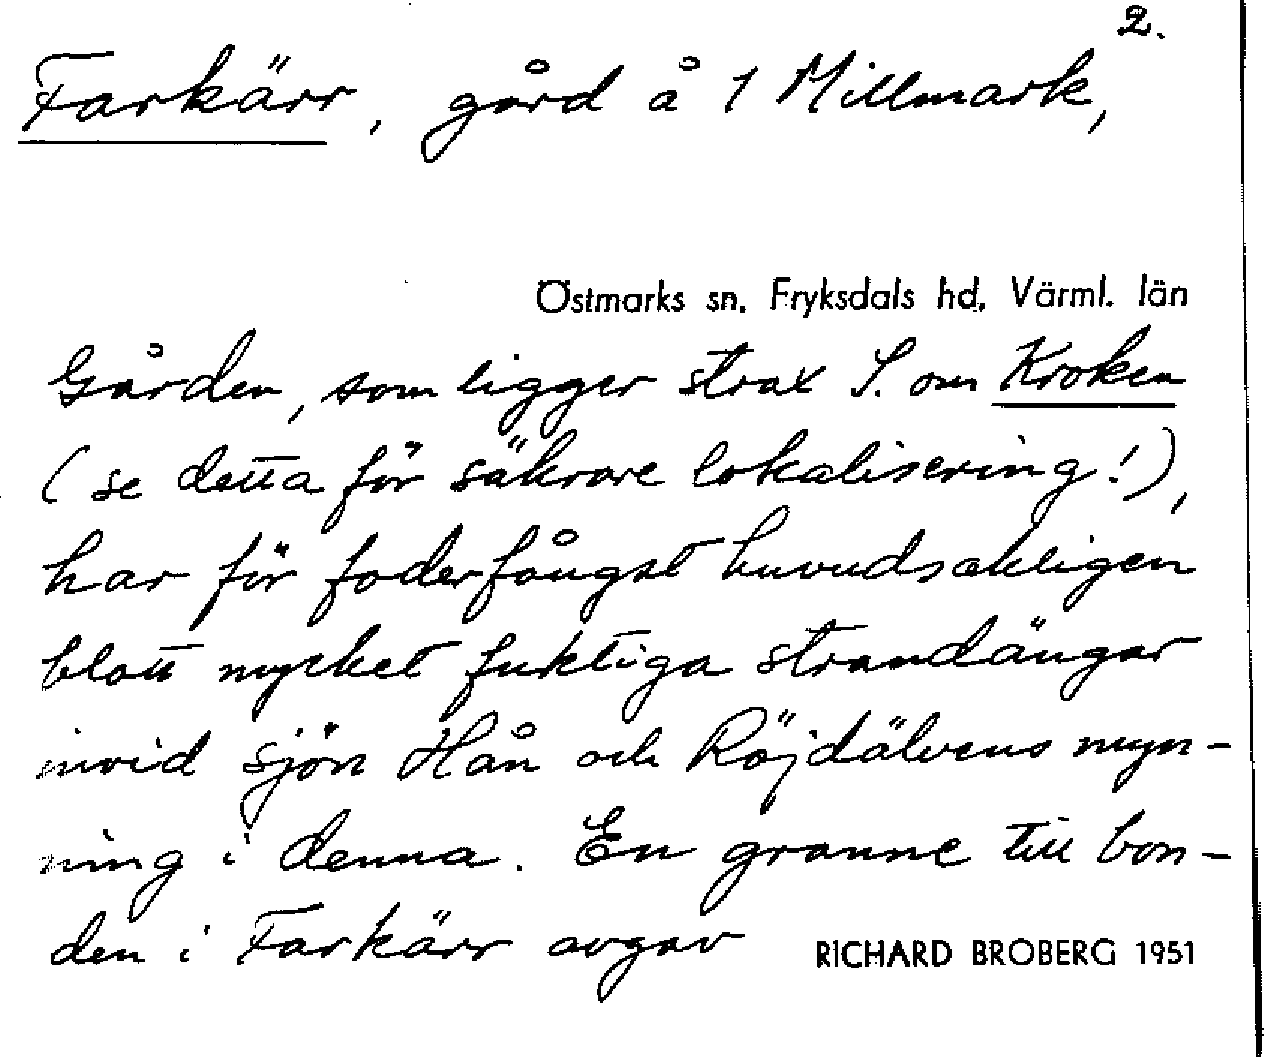 2.
Farkärr, gård å 1 Millmark,
Östmarks sn. Fryksdals hd. Värml. län
Gården, som ligger strax S. om Kroken
(se detta för säkrare lokalisering!),
har för foderfångst huvudsakligen
blott mycket fuktiga strandängar
invid sjön Hån och Röjdälvens myn-
ning i denna. En granne till bon-
den i Farkärr avgav
RICHARD BROBERG 1951